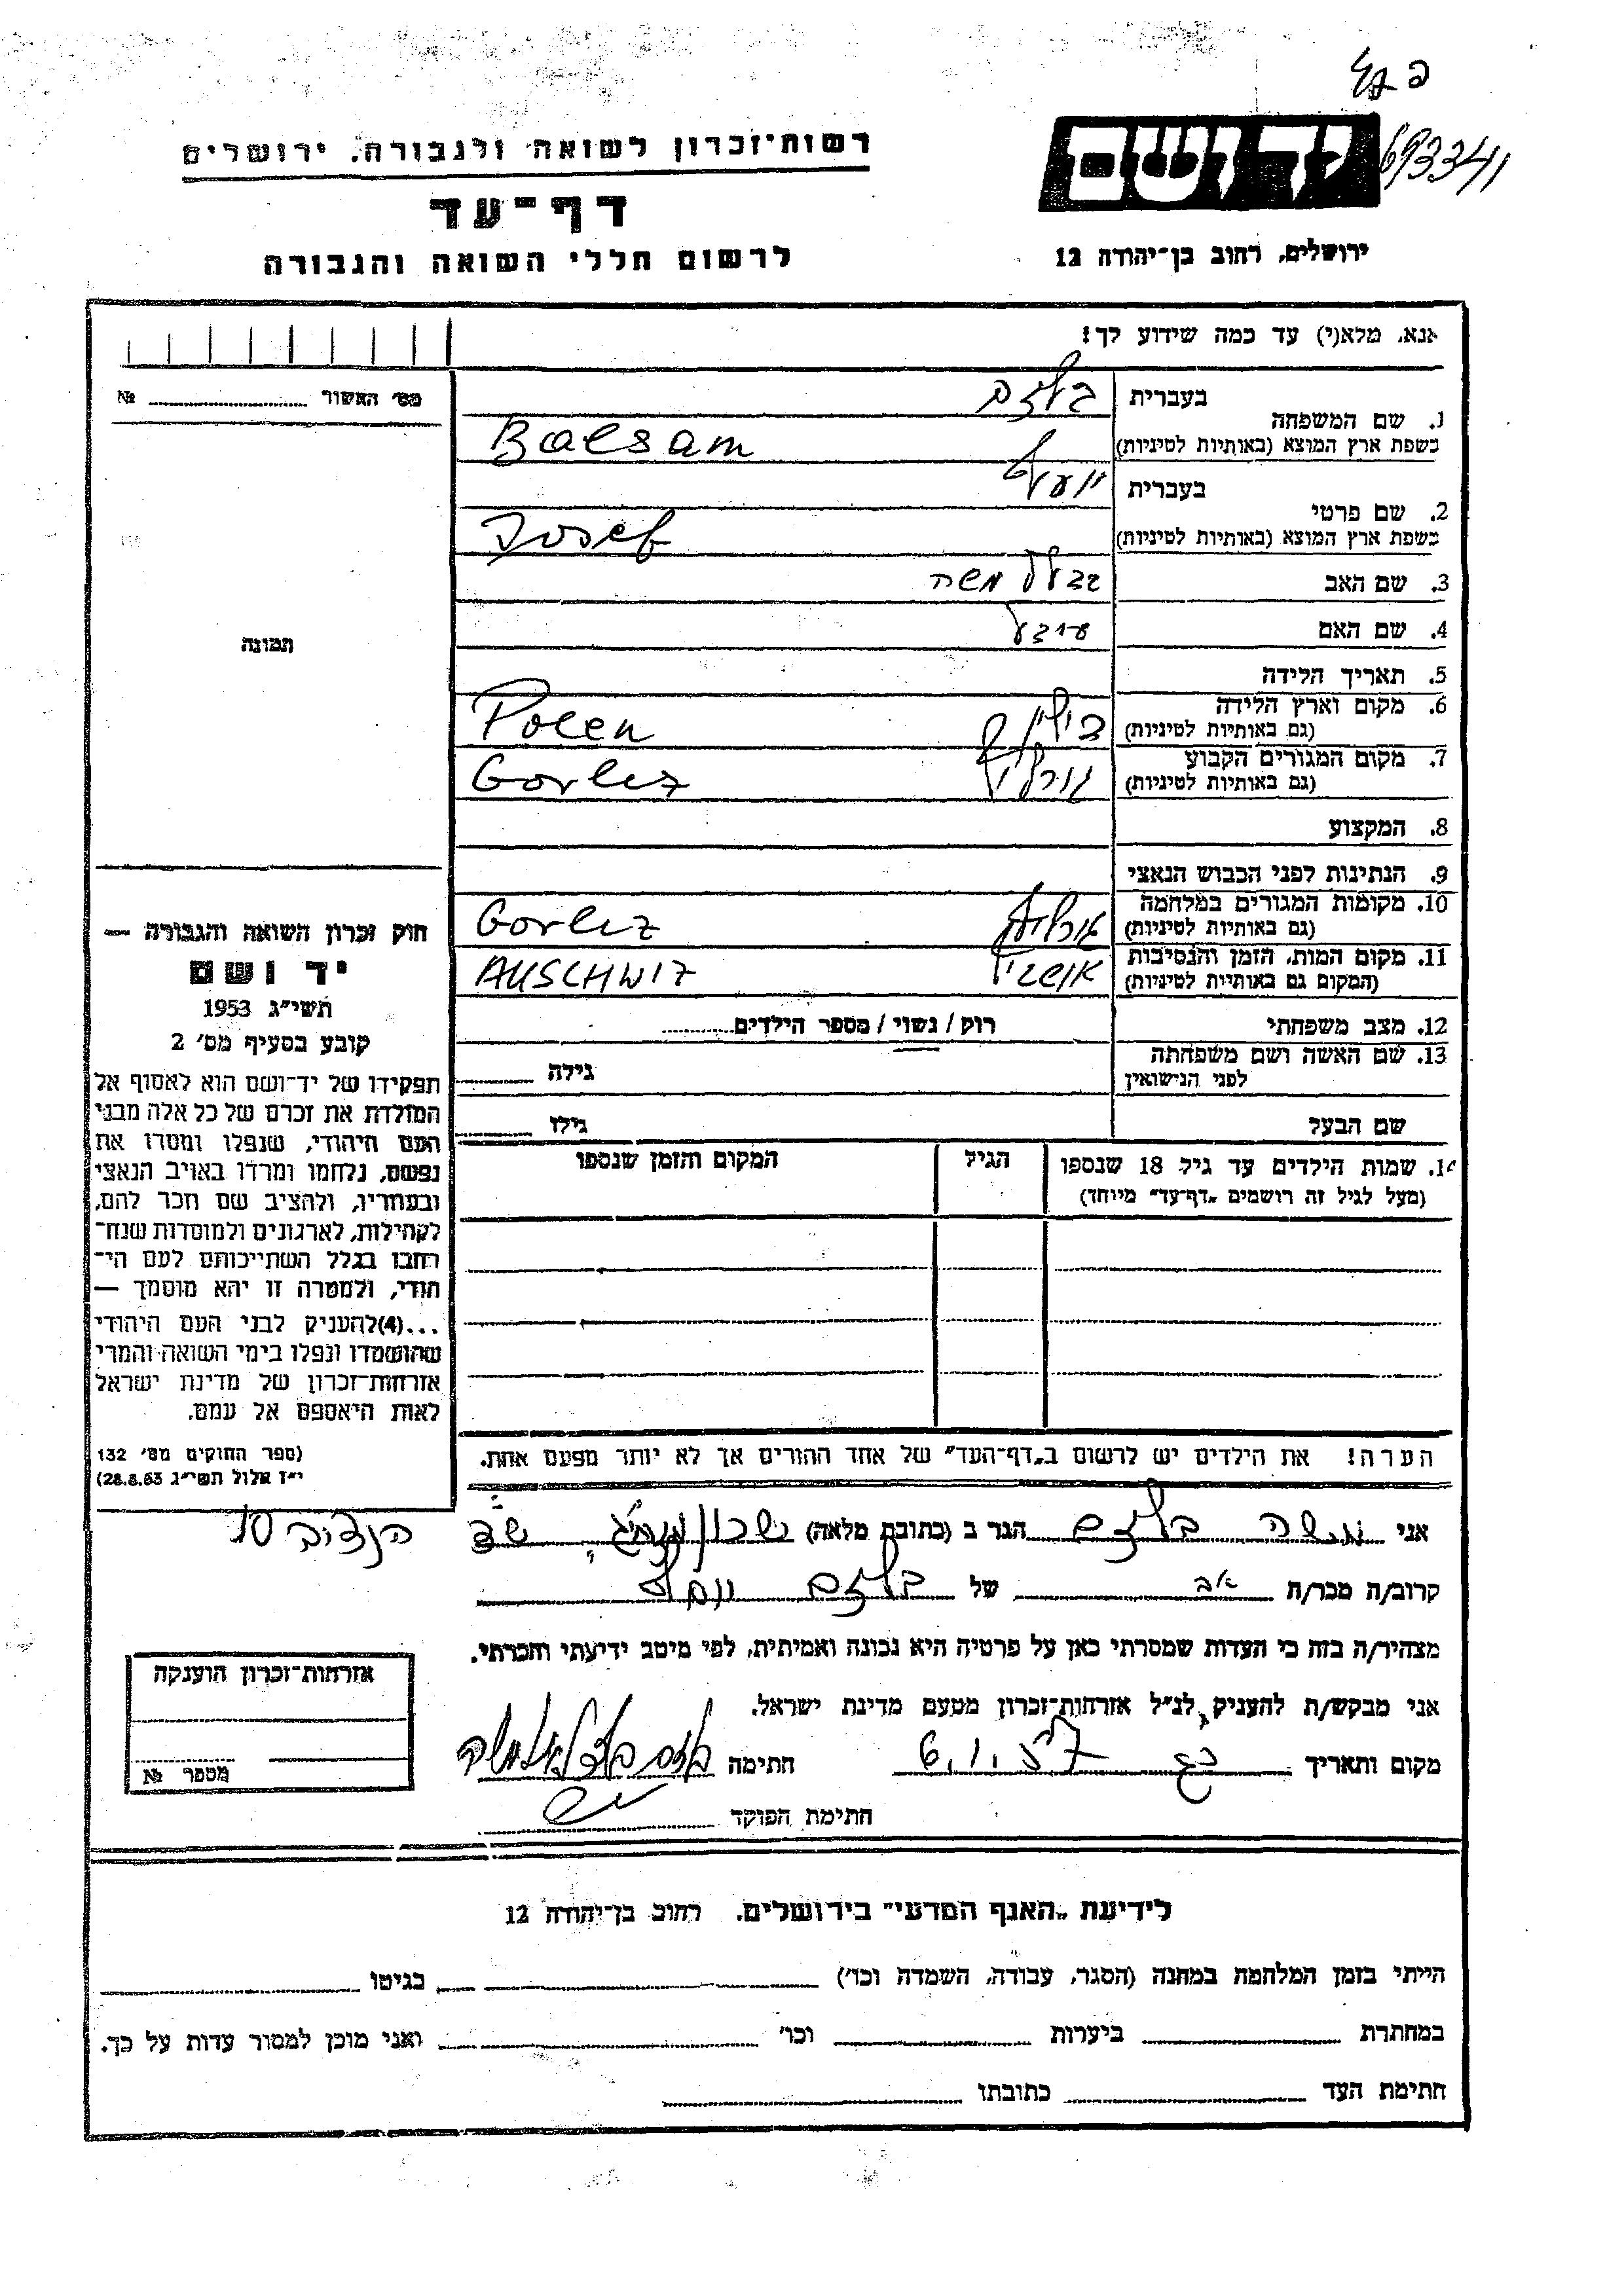 693341
רשות־זכרון לשואה ולגבורה, ירושלים
יד ושם
דף־עד
לרשום חללי השואה והגבורה
ירושלים, רחוב בן־יהודה 12
אנא, מלא(י) עד כמה שידוע לך!
מס׳ האשור № 
1. שם המשפחה
בעברית בלזם
בשפת ארץ המוצא (באותיות לטיניות) Balsam
2. שם פרטי
בעברית יוסף
בשפת ארץ המוצא (באותיות לטיניות) Josef
3. שם האב בצלאל משה
4. שם האם
תמונה
5. תאריך הלידה
6. מקום וארץ הלידה
(גם באותיות לטיניות) פולין Polen
7. מקום המגורים הקבוע
(גם באותיות לטיניות) גורליץ Gorliz
8. המקצוע
9. הנתינות לפני הכבוש הנאצי
10. מקומות המגורים במלחמה
(גם באותיות לטיניות) Gorliz
11. מקום המות, הזמן והנסיבות
(המקום גם באותיות לטיניות) אושביץ AUSCHWIZ
12. מצב משפחתי רוק / נשוי / מספר הילדים
13. שם האשה ושם משפחתה
לפני הנישואין גילה
שם הבעל גילו
14. שמות הילדים עד גיל 18 שנספו
(מעל לגיל זה רושמים „דף־עד״ מיוחד)
הגיל
המקום והזמן שנספו
חוק זכרון השואה והגבורה —
יד ושם
תשי״ג 1953
קובע בסעיף מס׳ 2
תפקידו של יד־ושם הוא לאסוף אל
המולדת את זכרם של כל אלה מבני
העם היהודי, שנפלו ומסרו את
נפשם, נלחמו ומרדו באויב הנאצי
ובעוזריו, ולהציב שם וזכר להם,
לקהילות, לארגונים ולמוסדות שנח־
רבו בגלל השתייכותם לעם הי־
הודי, ולמטרה זו יהא מוסמך —
...(4)להעניק לבני העם היהודי
שהושמדו ונפלו בימי השואה והמרי
אזרחות־זכרון של מדינת ישראל
לאות היאספם אל עמם.
(ספר החוקים מס׳ 132
י״ז אלול תשי״ג 28.8.53)
הערה! את הילדים יש לרשום ב„דף־העד״ של אחד ההורים אך לא יותר מפעם אחת.
אני משה בלזם הגר ב (כתובת מלאה) שד הנדיב 10
קרוב/ה מכר/ה של בלזם יוסף
מצהיר/ה בזה כי העדות שמסרתי כאן על פרטיה היא נכונה ואמיתית, לפי מיטב ידיעתי והכרתי.
אני מבקש/ת להעניק לנ״ל אזרחות־זכרון מטעם מדינת ישראל.
מקום ותאריך 6.1. חתימה
חתימת הפוקד
אזרחות־זכרון הוענקה
מספר №
לידיעת „האגף המדעי״ בירושלים, רחוב בן־יהודה 12
הייתי בזמן המלחמה במחנה (הסגר, עבודה, השמדה וכו׳) בגיטו
במחתרת ביערות וכו׳ ואני מוכן למסור עדות על כך.
חתימת העד כתובתו